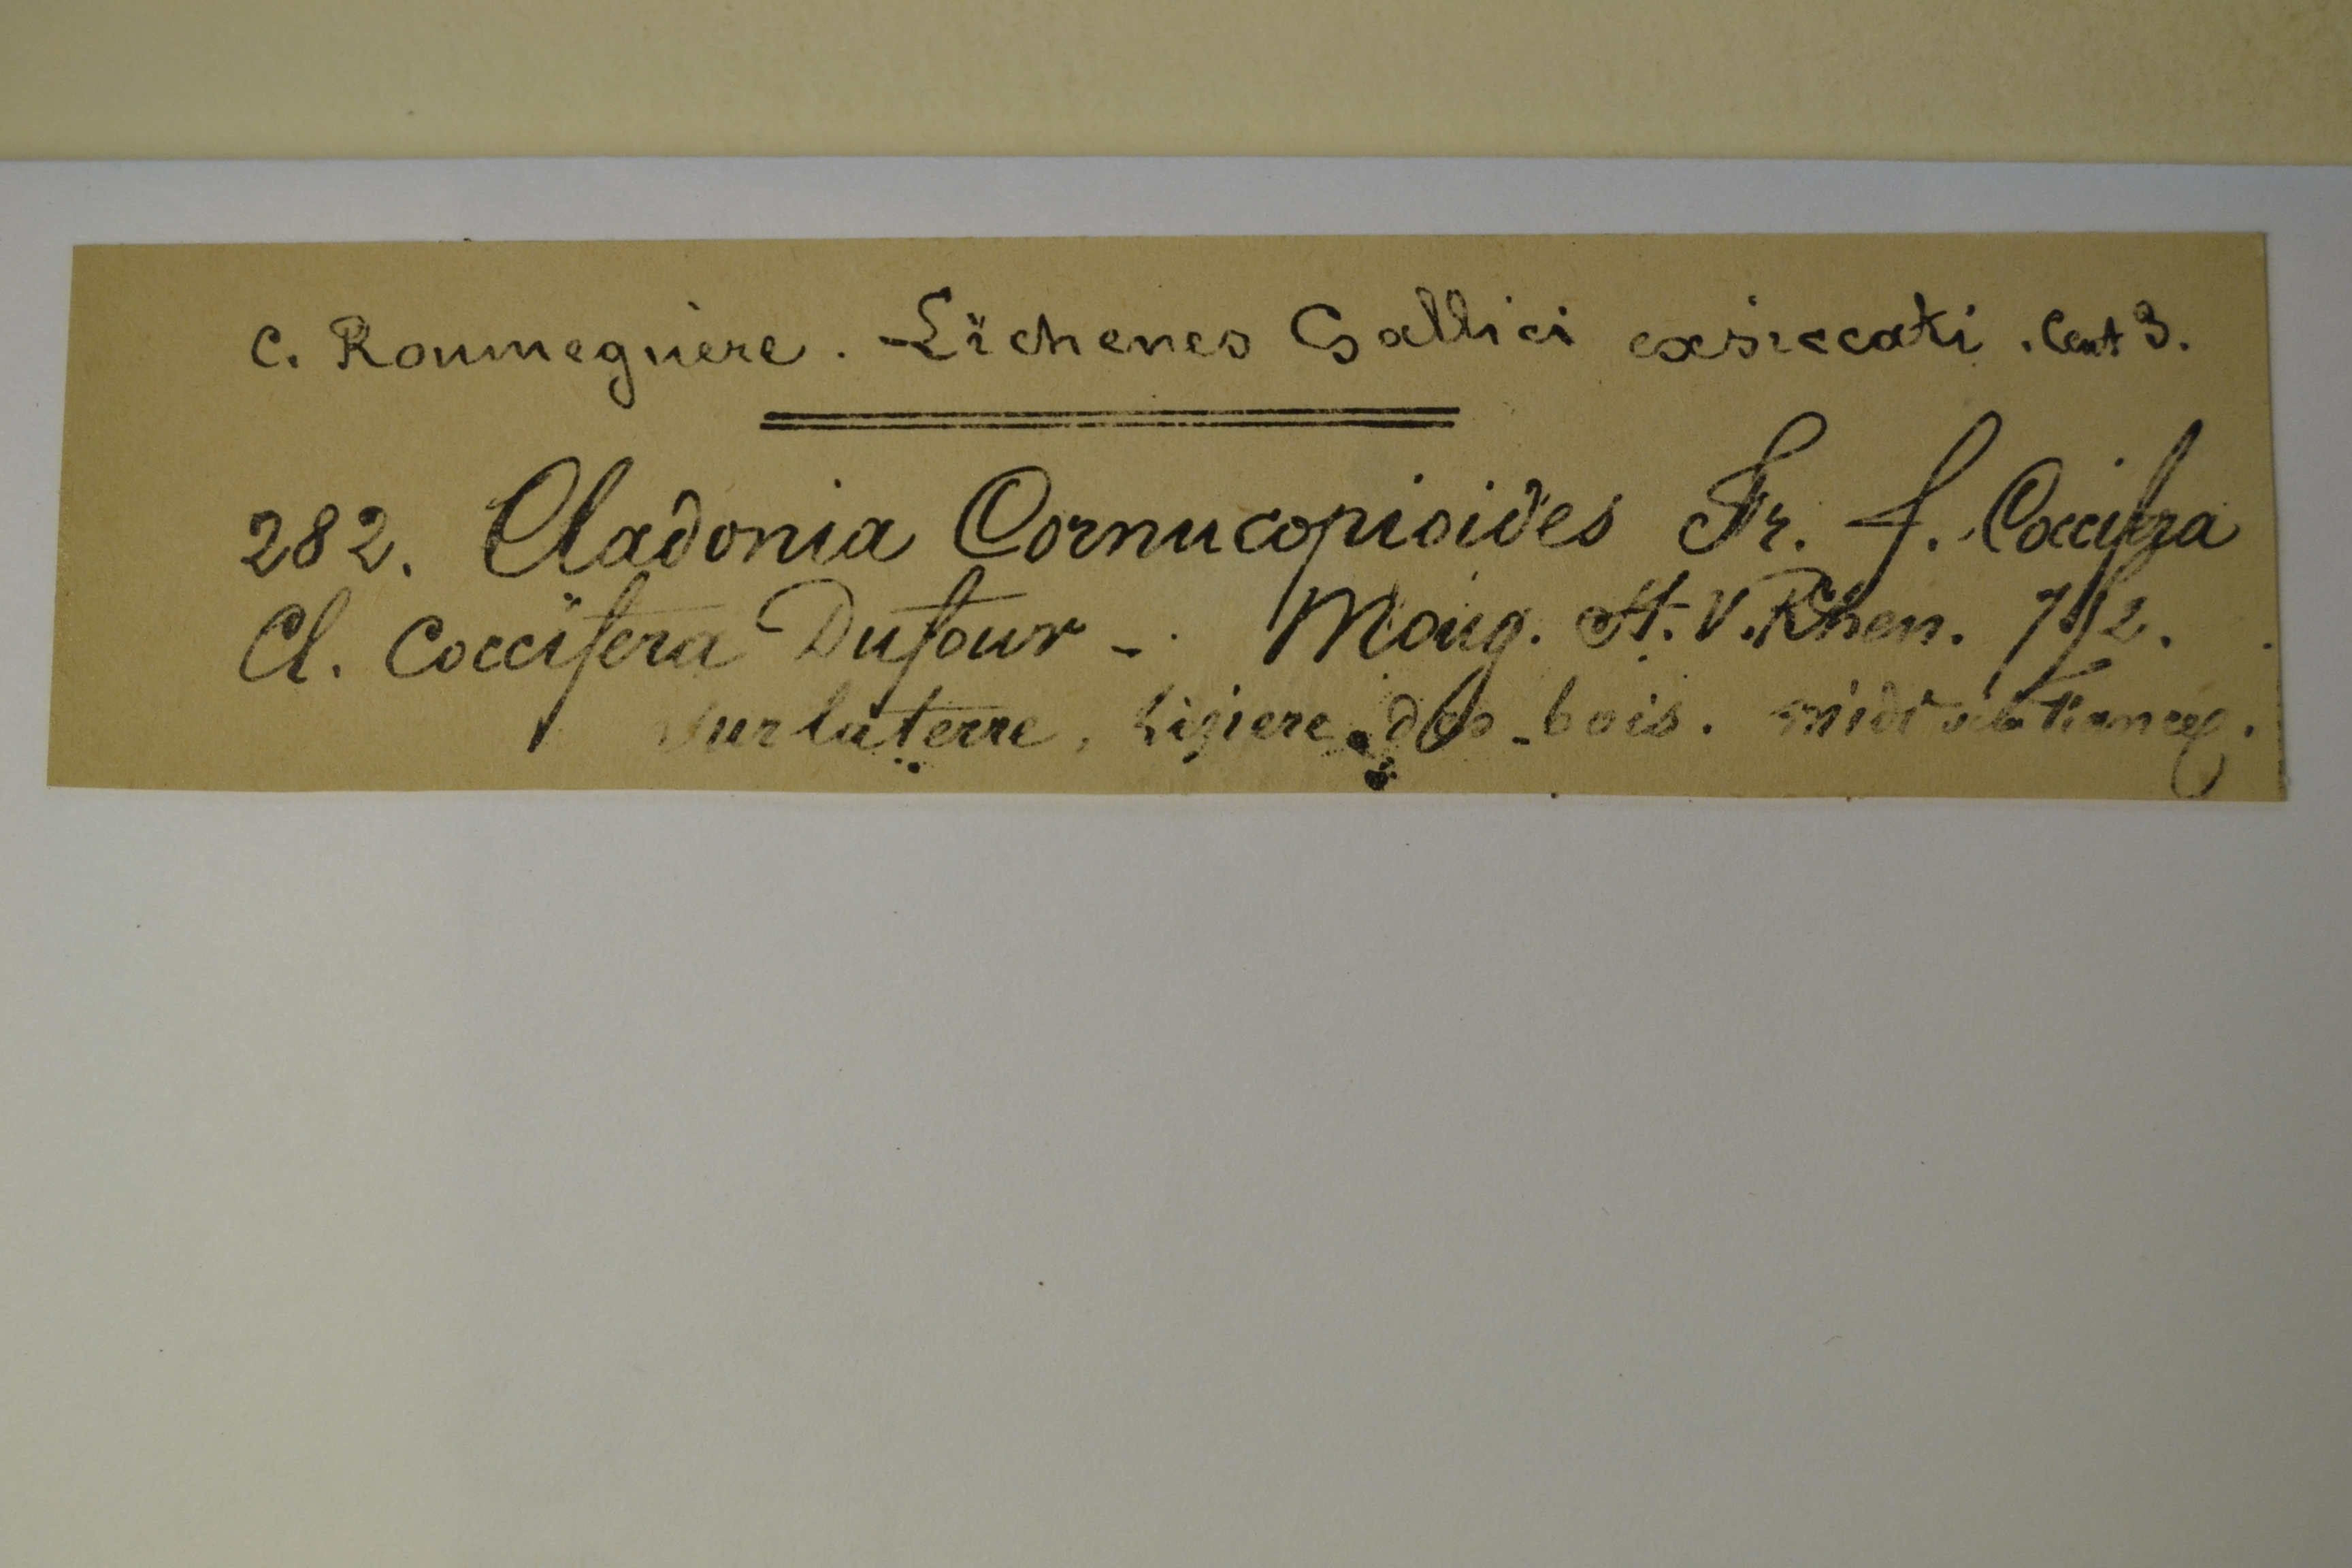 C. Roumeguère. Lichenes Gallici exsiccati. Cent 3.
282. Cladonia Cornucopioides Fr. f. Coccifera
Cl. Coccifera Dufour - Moug. St. V. Rhen. 752.
Sur la terre, Lisiere des bois. midi de la France.